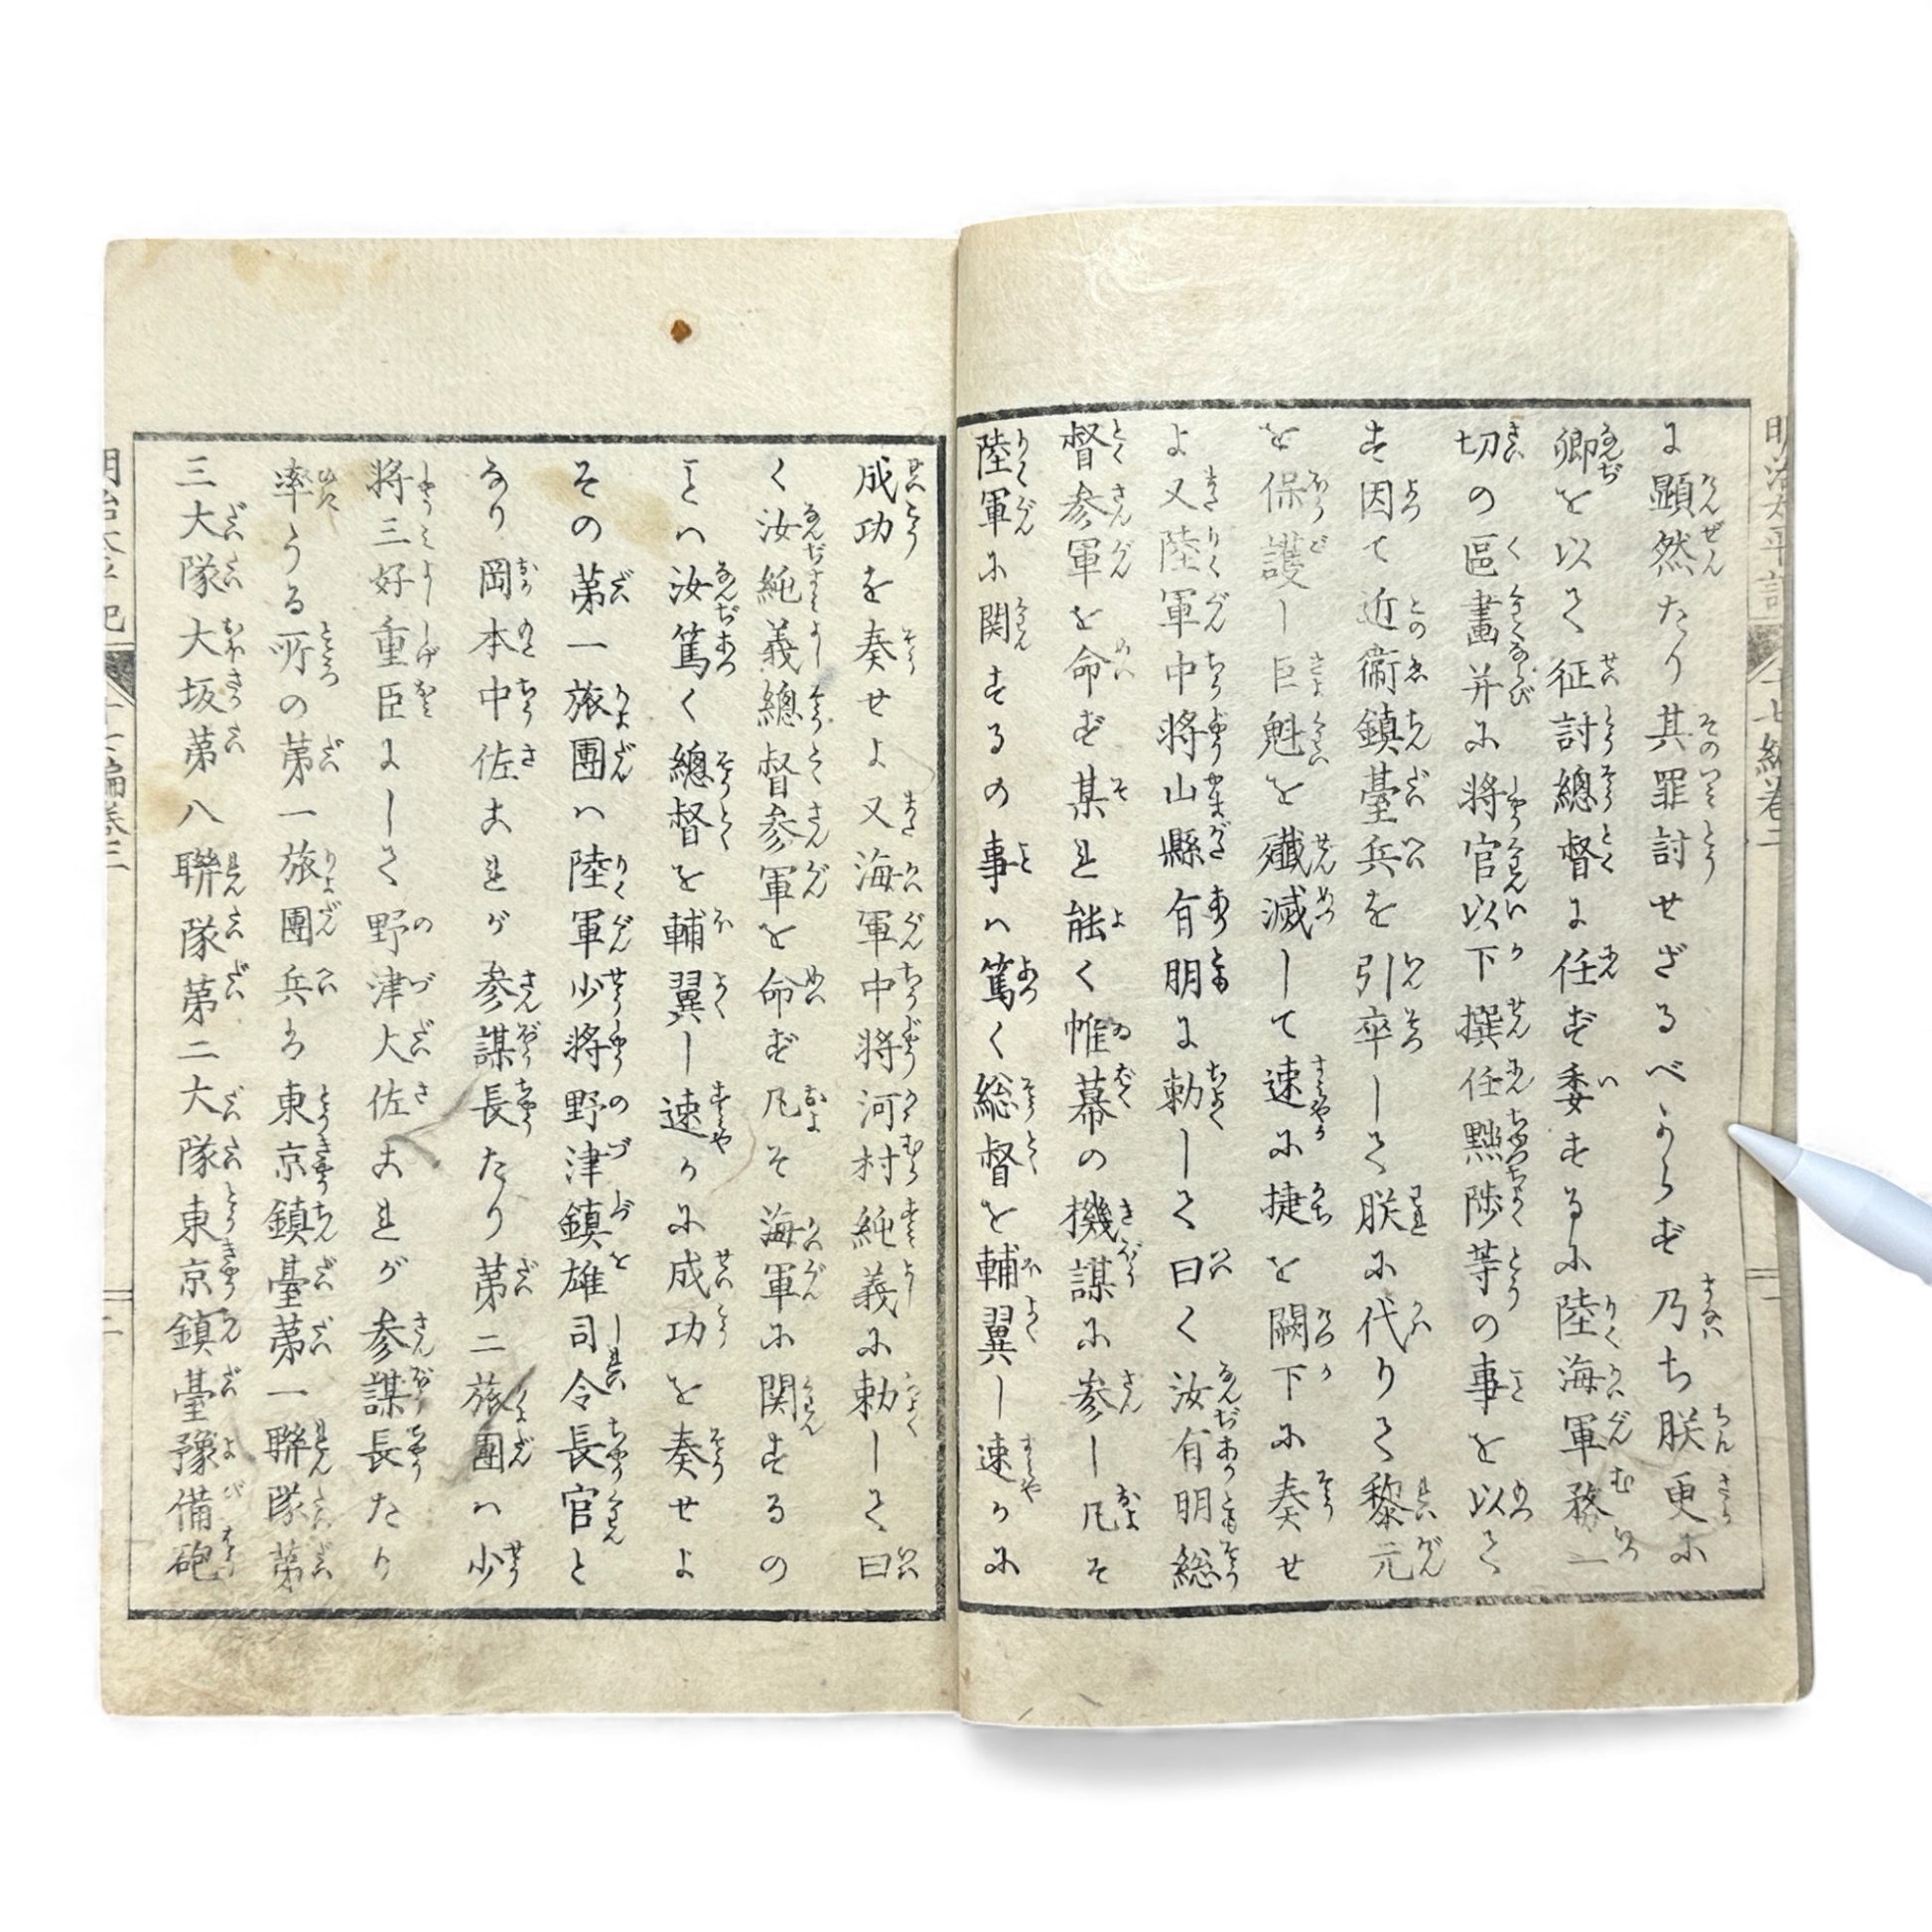 に顕然たり其罪討せざるべからず乃ち朕更に
卿を以て征討總督に任ず委するに陸海軍務一
切の區畫并に将官以下撰任黜陟等の事を以て
す因て近衞鎮臺兵を引卒して朕に代りて黎元
を保護し巨魁を殲滅して速に捷を闕下に奏せ
よ又陸軍中将山縣有朋に勅して曰く汝有朋総
督参軍を命ず某れ能く帷幕の機謀に参し凡そ
陸軍に関するの事ハ篤く総督を輔翼し速かに
成功を奏せよ又海軍中将河村純義に勅して曰
く汝純義總督参軍を命ず凡そ海軍に関するの
ことハ汝篤く總督を輔翼し速かに成功を奏せよ
その第一旅團ハ陸軍少将野津鎮雄司令長官と
なり岡本中佐これが参謀長たり第二旅團ハ少
将三好重臣にして野津大佐これが参謀長たり
率うる所の第一旅團兵ハ東京鎮臺第一聯隊第
三大隊大坂第八聯隊第二大隊東京鎮臺豫備砲
明治太平記
十一編巻三
二